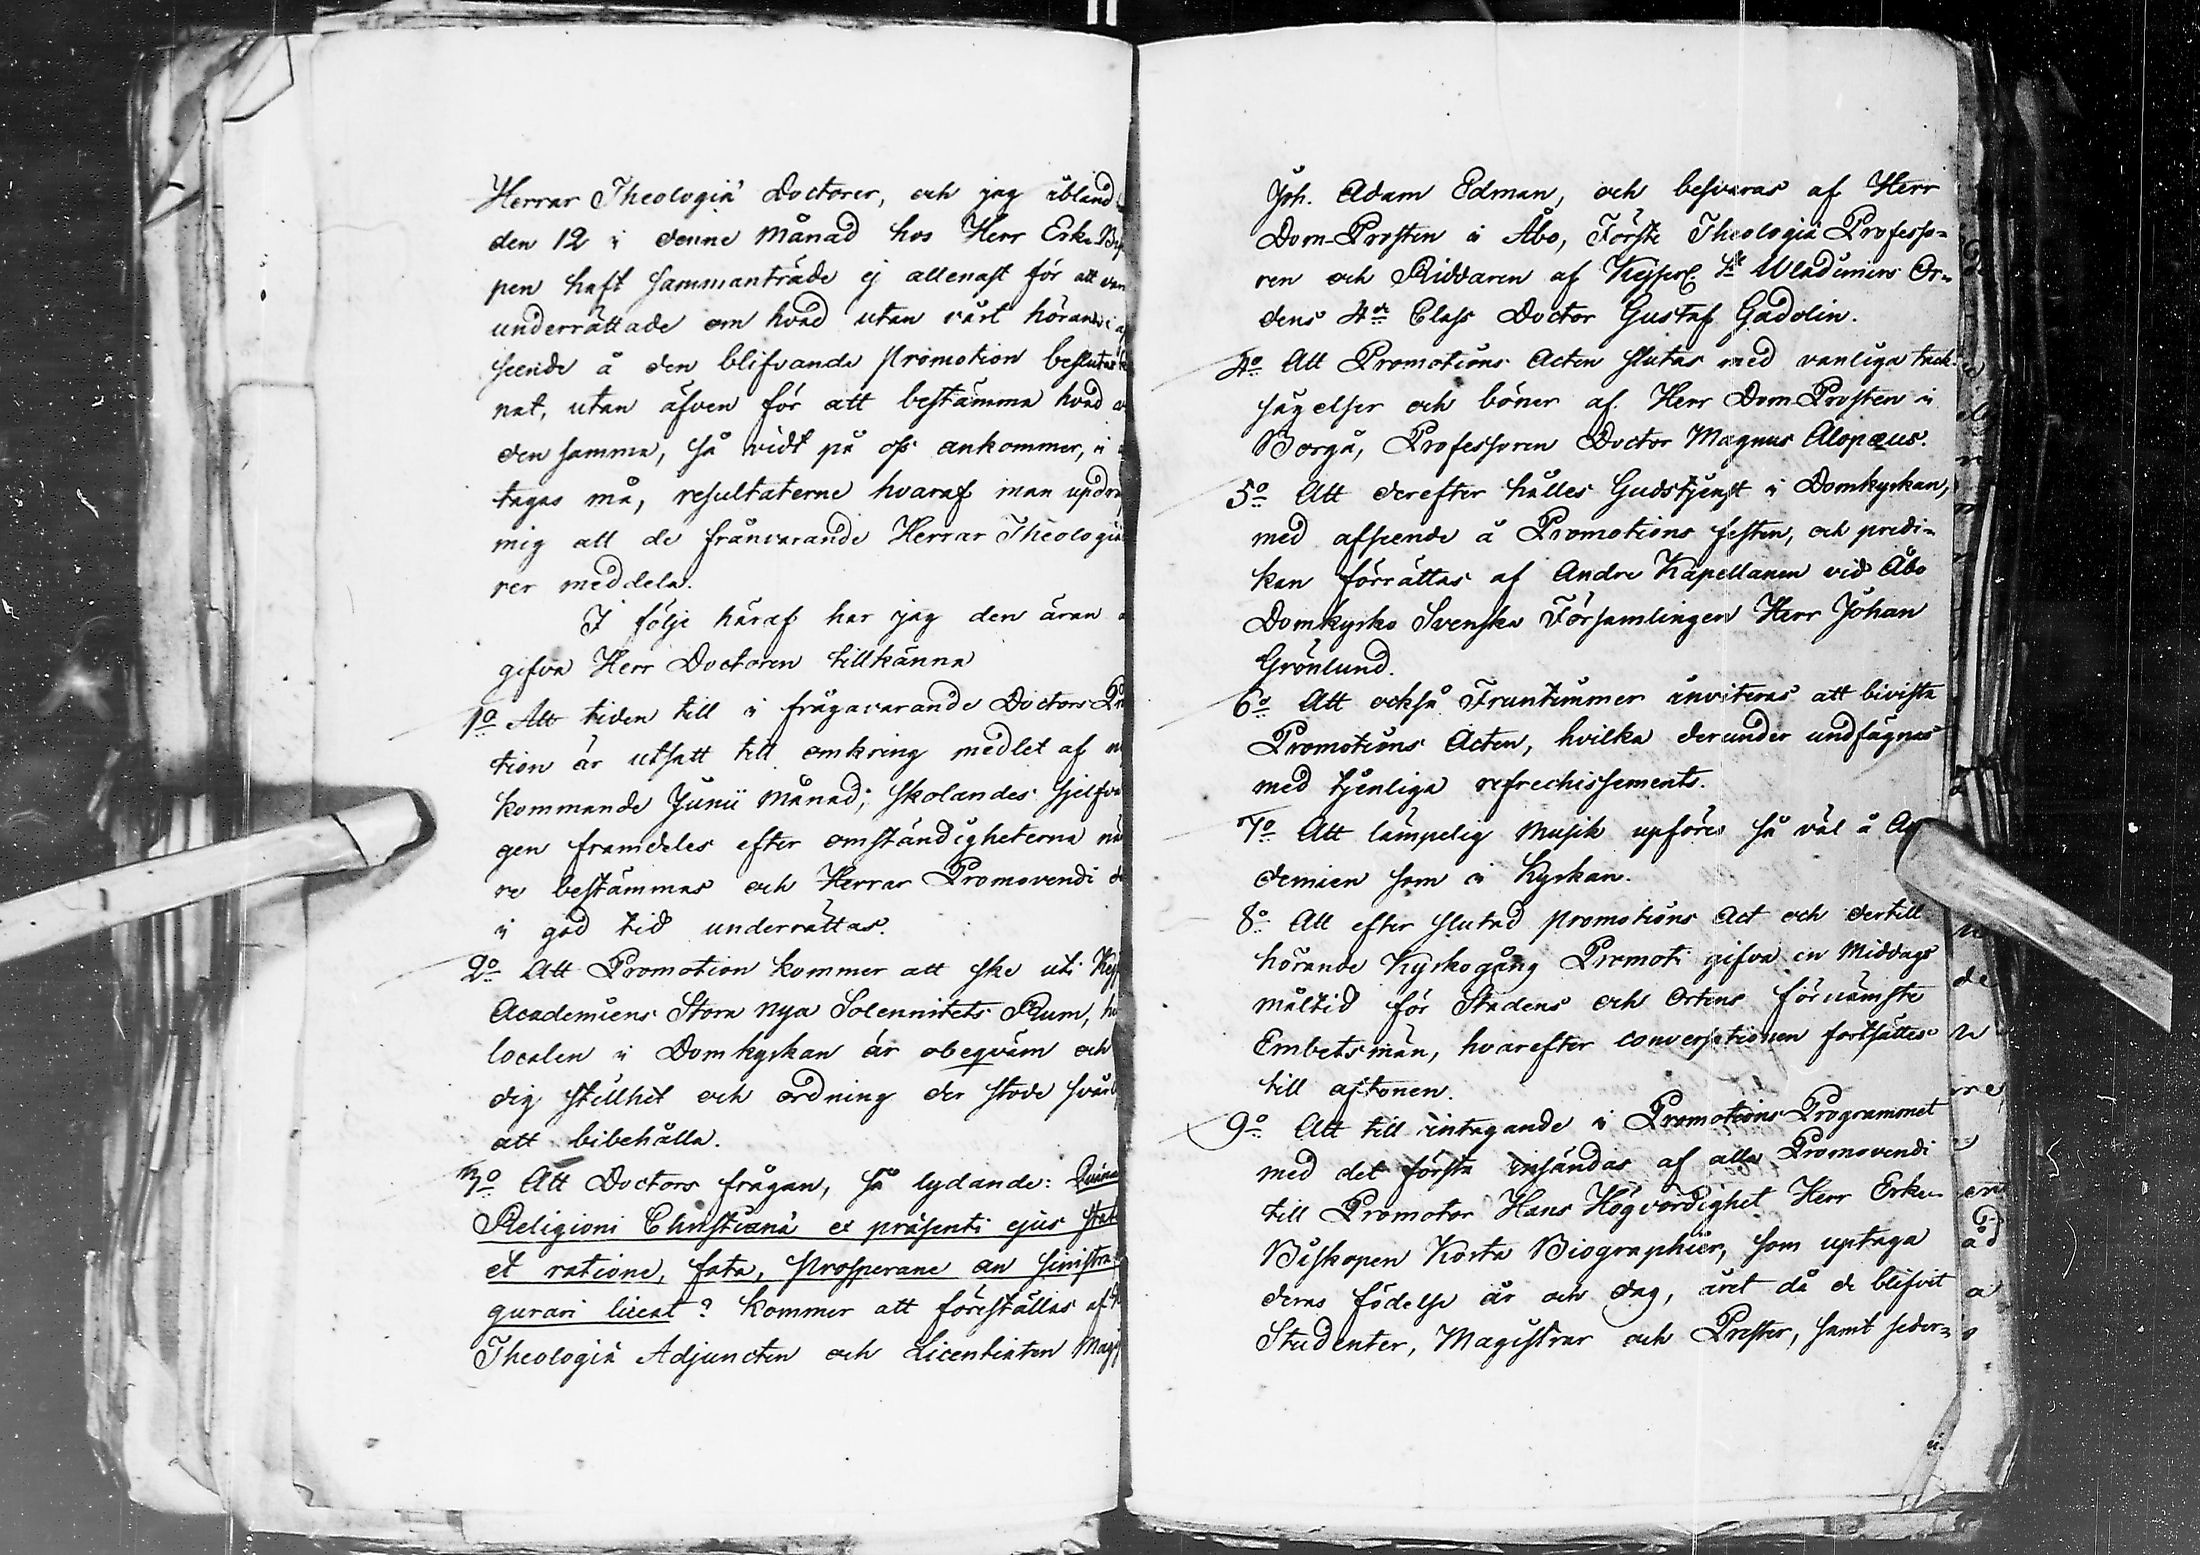 Herrar Theologiæ Doctorer, och jag ibland
den 12 i denne Månad hos Herr Erke-Bis
pen haft sammanträde ej allenast för att
underrättade om hvad utan vårt hörande i
seende å den blifvande Promotion beslutat
nat, utan äfven för att bestämma hvad
den samma, så vidt på oss ankommer, i
tagas må, resultaterne hvaraf man updra
mig att de frånvarande Herrar Theologiæ
rer meddela.
I följe häraf har jag den äran
gifva Herr Doctoren tillkänna
1o Att tiden till i frågavarande Doctors Pr
tion är utsatt till omkring medlet af
kommande Junii Månad; skolandes sjelfva
gen framdeles efter omständigheterna nä
re bestämmas och Herrar Promovendi
i god tid underrättas.
2o Att Promotion kommer att ske uti Kejs
Academiens Stora nya Solennitets Rum,
localen i Domkyrkan är obeqväm och
dig stillhet och ordning der stode svårl
att bibehålla.
3o Att Doctors frågan, så lydande: Quænam
Religioni Christianæ ex præsenti ejus stat
et ratione, fata, prosperane an sinistra
gurari liceat? kommer att föreställas af
Theologiæ Adjuncten och Licentiaten Mag
Joh. Adam Edman, och besvaras af Herr
Dom-Prosten i Åbo, Förste Theologiæ Professo-
ren och Riddaren af Kejserl. St Wladimirs Or-
dens 4de Class Doctor Gustaf Gadolin.
4o Att Promotions Acten slutas med vanliga tack-
sägelser och böner af Herr Dom-Prosten i
Borgå, Professoren Doctor Magnus Alopæus.
5o Att derefter hålles Gudstjenst i Domkyrkan,
med afseende å Promotions festen, och predi-
kan förrättas af Andre Kapellanen vid Åbo
Domkyrko Svenska Församlingen Herr Johan
Grönlund.
6o Att också Fruntimmer inviteras att bivista
Promotions Acten, hvilka derunder undfägnas
med tjenliga refrechissements.
7o Att lämpelig Musik upföres så väl å Aca
demien som i Kyrkan.
8o Att efter slutad promotions Act och dertill
hörande Kyrkogång Promoti gifva en Middags
måltid för Stadens och Ortens förnämste
Embetsmän, hvarefter conversationen fortsättes
till aftonen.
9o Att till intagande i Promotions Programmet
med det första insändas af alla Promovendi
till Promotor Hans Högvördighet Herr Erke-
Biskopen Korta Biographier, som uptaga
deras födelse år och dag, året då de blifvit
Studenter, Magistrar och Prester, samt seder-